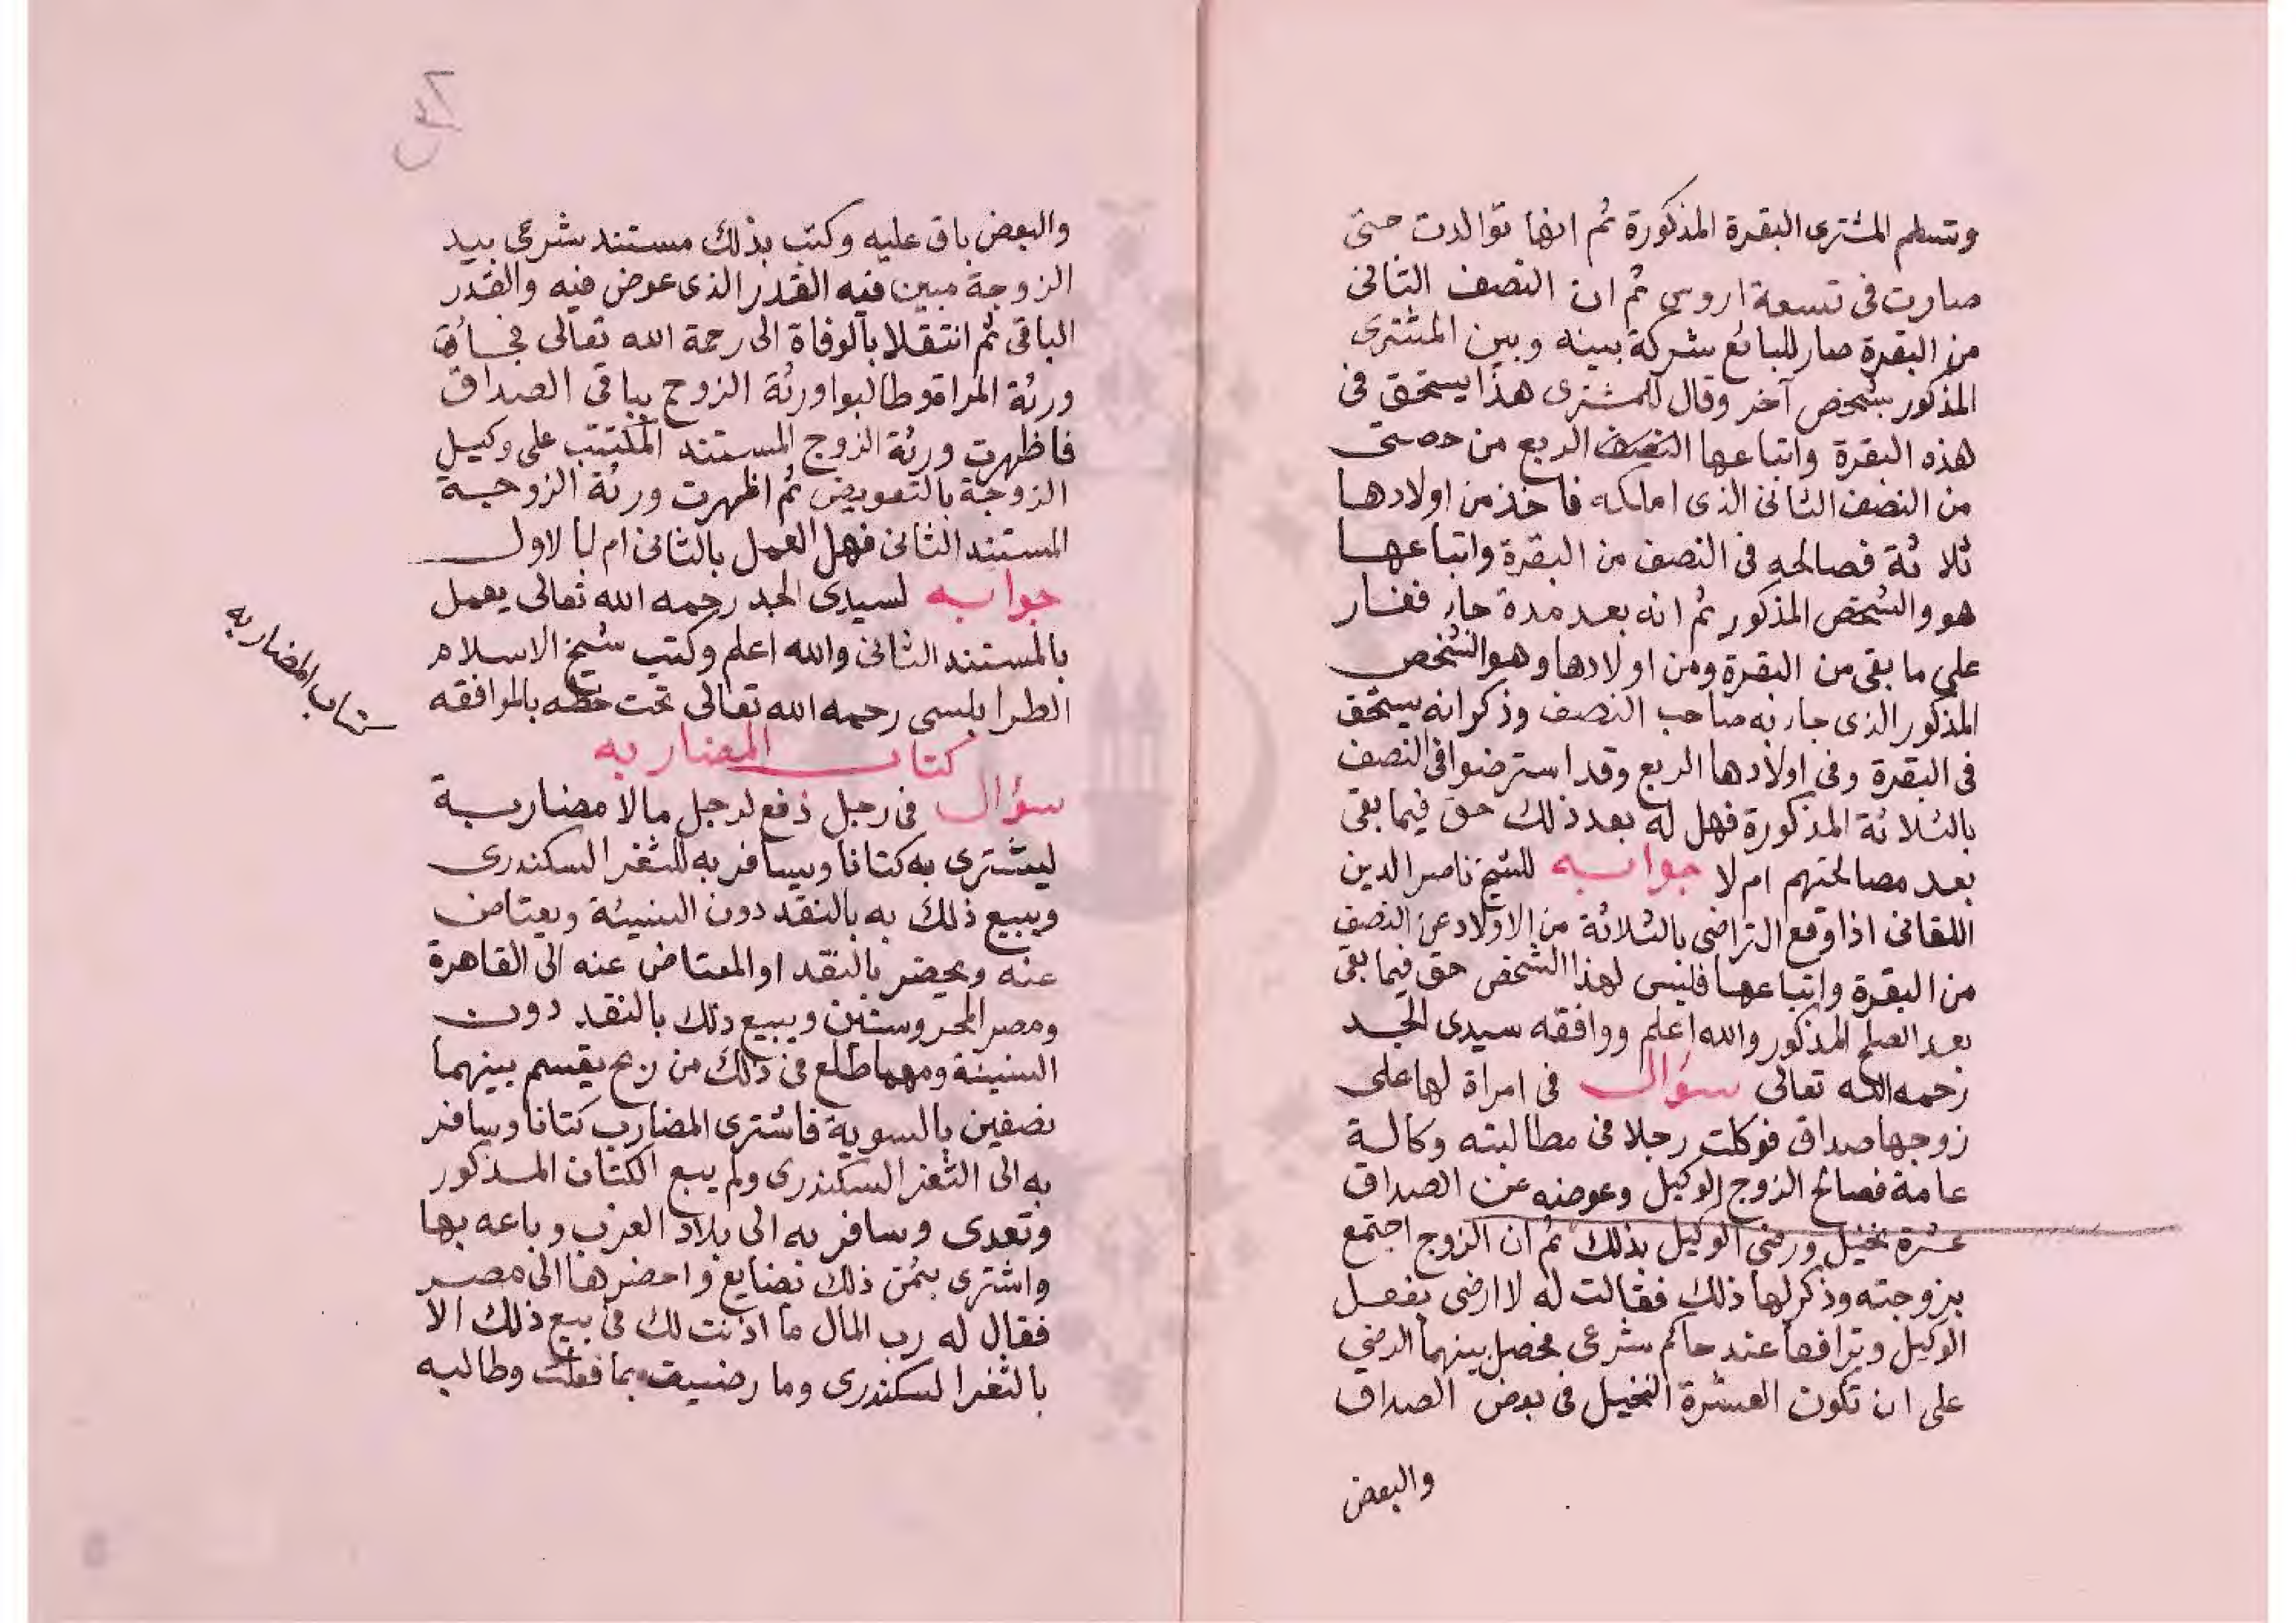 وتسلم المشترى البقرة المذكورة ثم انها توالدت حتى
صارت فى تسعة اروس ثم ان النصف الثانى
من البقرة صار للبائع شركة بينه وبين المشترى
المذكور بشخص آخر وقال للمشترى هذا يستحق فى
هذه البقرة واتباعها الربع من حصتى
من النصف الثانى الذى املكه فاخذ من اولادها
ثلاثة فصالحه فى النصف من البقرة واتباعها
هو والشخص المذكور ثم انه بعد مدة جار فقار
على ما بقى من البقرة ومن اولادها وهو الشخص
المذكور الذى جاء به صاحب النصف وذكر انه يستحق
فى البقرة وفى اولادها الربع وقد استرضوا فى النصف
بالثلاثة المذكورة فهل له بعد ذلك حق فيما بقى
بعد مصالحتهم ام لا جوابه للشيخ ناصر الدين
اللقانى اذا وقع التراضى بالثلاثة من الاولاد عن النصف
من البقرة واتباعها فليس لهذا الشخص حق فيما بقى
بعد الصلح المذكور والله اعلم ووافقه سيدى الجد
رحمه الله تعالى سؤال فى امراة لها على
زوجها صداق فوكلت رجلا فى مطالبته وكالة
عامة فصالح الزوج الوكيل وعوضه عن الصداق
عشرة نخيل ورضى الوكيل بذلك ثم ان الزوج اجتمع
بزوجته وذكر لها ذلك فقالت له لا ارضى بفعل
الوكيل وترافعا عند حاكم شرعى فحصل بينهما الرضى
على ان تكون العشرة النخيل فى بعض الصداق
والبعض
والبعض باق عليه وكتب بذلك مستند شرعى بيد
الزوجة مبين فيه القدر الذى عوض فيه والقدر
الباقى ثم انتقلا بالوفاة الى رحمة الله تعالى فجاءت
ورثة المراة وطالبوا ورثة الزوج بباقى الصداق
فاظهرت ورثة الزوج المستند المكتتب على وكيل
الزوجة بالتعويض ثم اظهرت ورثة الزوجة
المستند الثانى فهل العمل بالثانى ام بالاول
جوابه لسيدى الجد رحمه الله تعالى يعمل
بالمستند الثانى والله اعلم وكتب شيخ الاسلام
الطرابلسى رحمه الله تعالى تحت خطه بالموافقه
كتاب المضاربه
كتاب المضاربه
سؤال فى رجل دفع لرجل مالا مضاربة
ليشترى به كتانا ويسافر به للثغر السكندرى
ويبيع ذلك به بالنقد دون النسيئة ويعتاض
عنه ويحضر بالنقد او المعتاض عنه الى القاهرة
ومصر المحروستين ويبيع ذلك بالنقد دون
النسيئة ومهما طلع فى ذلك من ربح يقسم بينهما
نصفين بالسوية فاشترى المضارب كتانا وسافر
به الى الثغر السكندرى ولم يبع الكتان المذكور
وتعدى وسافر به الى بلاد الغرب وباعه بها
واشترى بثمن ذلك بضايع واحضرها الى مصر
فقال له رب المال ما اذنت لك فى بيع ذلك الا
بالثغر السكندرى وما رضيت بما فعلت وطالبه